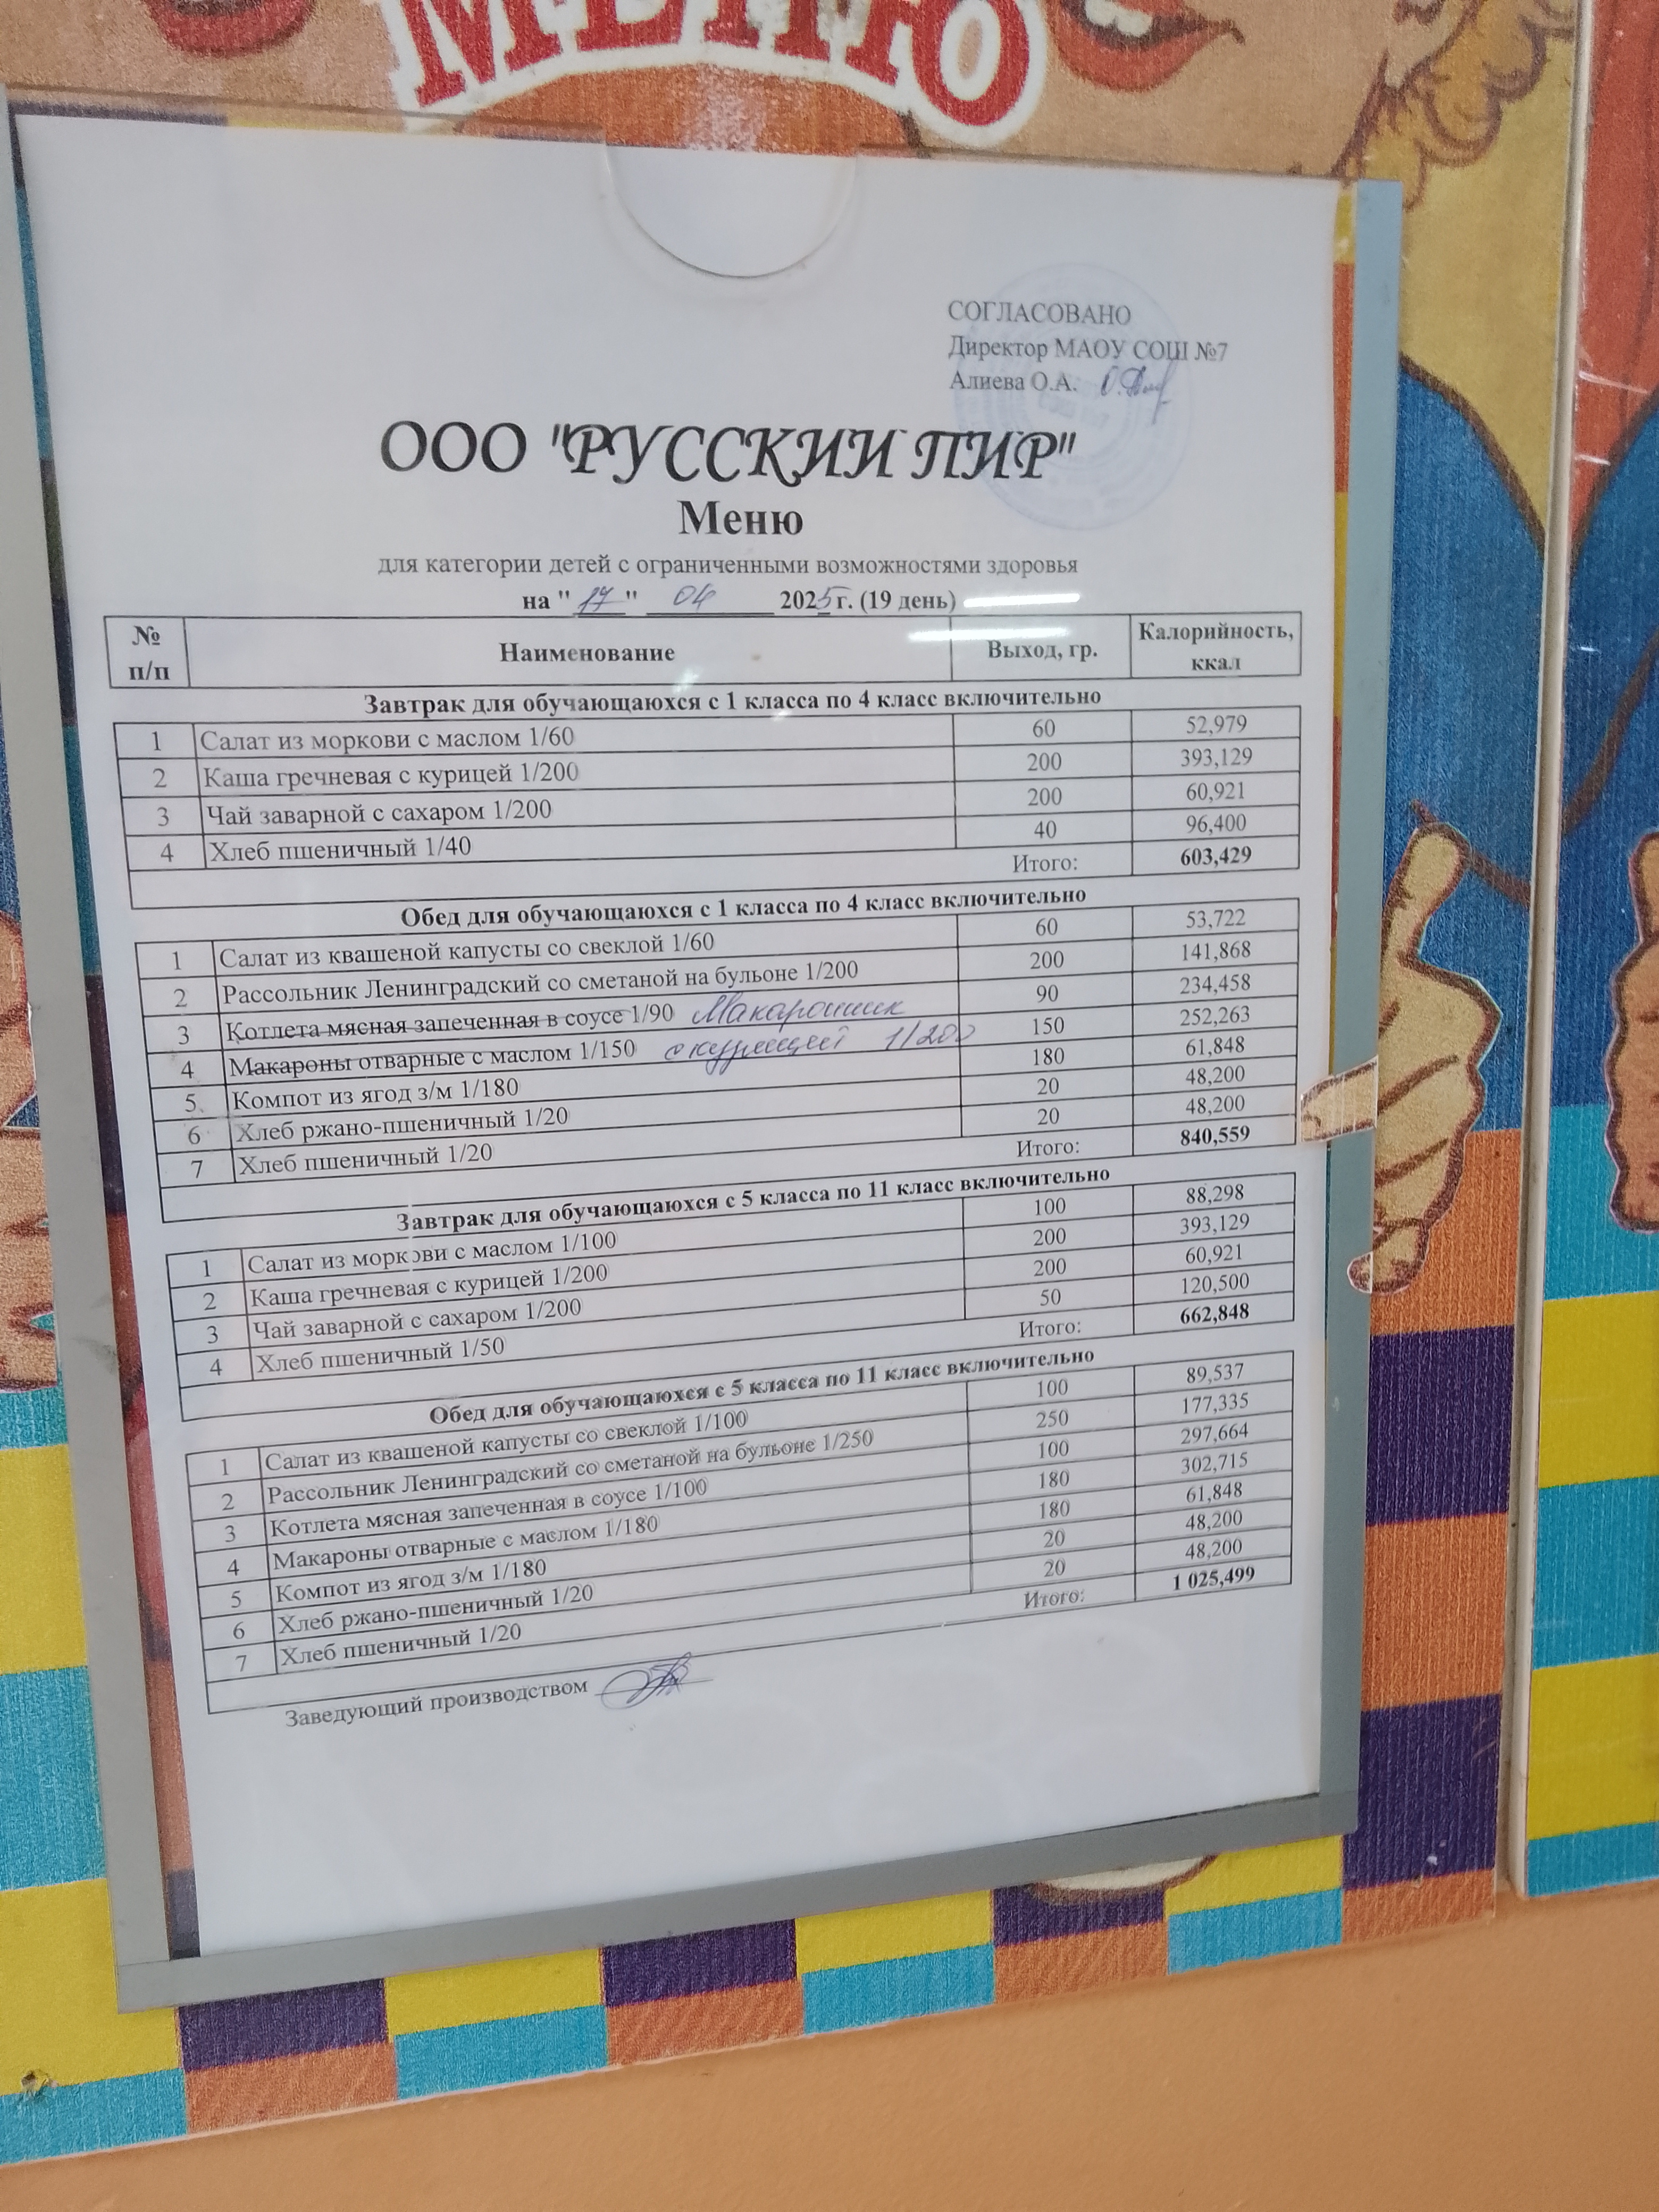 МЕНЮ
СОГЛАСОВАНО
Директор МАОУ СОШ №7
Алиева О.А.
ООО "РУССКИЙ ПИР"
Меню
для категории детей с ограниченными возможностями здоровья
на "17" 04 2025 г. (19 день)
№ п/п Наименование Выход, гр. Калорийность, ккал
Завтрак для обучающаюхся с 1 класса по 4 класс включительно
1 Салат из моркови с маслом 1/60 60 52,979
2 Каша гречневая с курицей 1/200 200 393,129
3 Чай заварной с сахаром 1/200 200 60,921
4 Хлеб пшеничный 1/40 40 96,400
Итого: 603,429
Обед для обучающаюхся с 1 класса по 4 класс включительно
1 Салат из квашеной капусты со свеклой 1/60 60 53,722
2 Рассольник Ленинградский со сметаной на бульоне 1/200 200 141,868
3 Котлета мясная запеченная в соусе 1/90 Макаронник 90 234,458
4 Макароны отварные с маслом 1/150 с курицей 1/200 150 252,263
5 Компот из ягод з/м 1/180 180 61,848
6 Хлеб ржано-пшеничный 1/20 20 48,200
7 Хлеб пшеничный 1/20 20 48,200
Итого: 840,559
Завтрак для обучающаюхся с 5 класса по 11 класс включительно
1 Салат из моркови с маслом 1/100 100 88,298
2 Каша гречневая с курицей 1/200 200 393,129
3 Чай заварной с сахаром 1/200 200 60,921
4 Хлеб пшеничный 1/50 50 120,500
Итого: 662,848
Обед для обучающаюхся с 5 класса по 11 класс включительно
1 Салат из квашеной капусты со свеклой 1/100 100 89,537
2 Рассольник Ленинградский со сметаной на бульоне 1/250 250 177,335
3 Котлета мясная запеченная в соусе 1/100 100 297,664
4 Макароны отварные с маслом 1/180 180 302,715
5 Компот из ягод з/м 1/180 180 61,848
6 Хлеб ржано-пшеничный 1/20 20 48,200
7 Хлеб пшеничный 1/20 20 48,200
Итого: 1 025,499
Заведующий производством